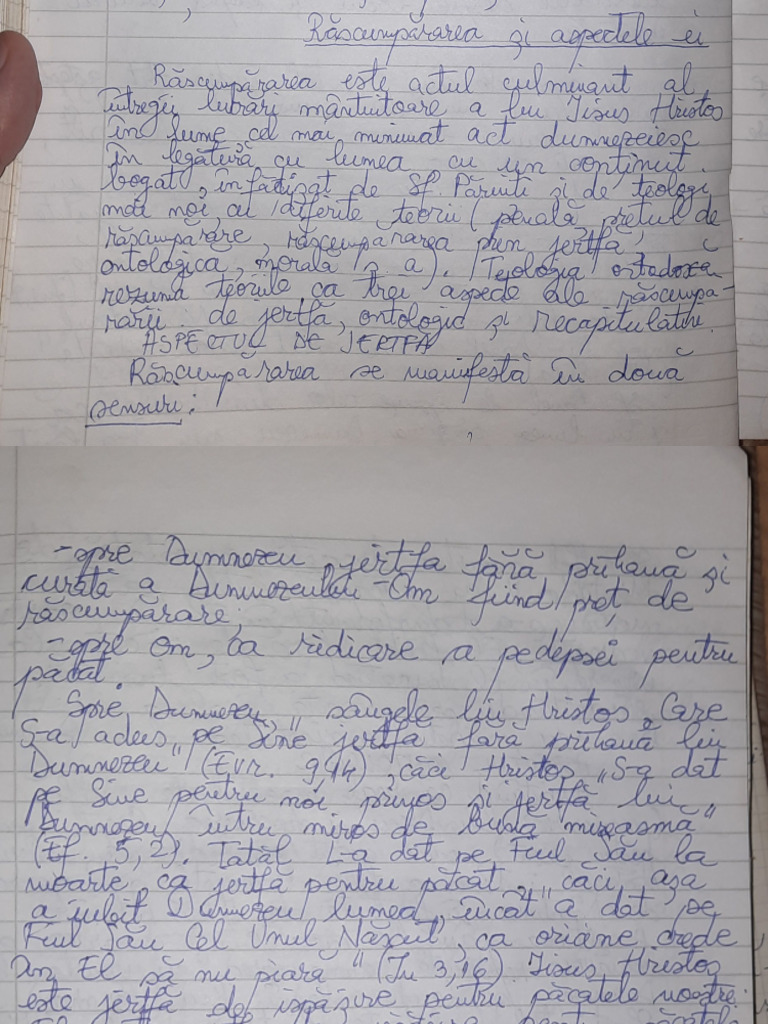 Răscumpărarea și aspectele ei
Răscumpărarea este actul culminant al
întregii lucrări mântuitoare a lui Iisus Hristos
în lume cel mai minunat act dumnezeiesc
în legătură cu lumea cu un conținut
bogat, înfățișat de Sf. Părinți și de teologi
mai noi, cu diferite teorii (penală prețul de
răscumpărare, răscumpărarea prin jertfă,
ontologică, morală ș a). Teologia ortodoxă
rezumă teoriile, ca trei aspecte ale răscumpă-
rării: de jertfă, ontologic și recapitulativ.
ASPECTUL DE JERTFĂ
Răscumpărarea se manifestă în două
sensuri:
-spre Dumnezeu, jertfa fără prihană și
curată a Dumnezeului-Om fiind preț de
răscumpărare;
-spre om, ca ridicare a pedepsei pentru
păcat.
Spre Dumnezeu, „sângele lui Hristos, Care
S-a adus pe Sine jertfă fără prihană lui
Dumnezeu" (Evr. 9,14), căci Hristos „S-a dat
pe Sine pentru noi prinos și jertfă lui
Dumnezeu întru miros de bună mireasmă"
(Ef. 5,2). Tatăl L-a dat pe Fiul Său la
moarte, ca jertfă pentru păcat, „căci așa
a iubit Dumnezeu lumea, încât a dat pe
Fiul Său Cel Unul Născut, ca oricine crede
în El să nu piară" (In 3,16). Iisus Hristos
este jertfă de ispășire pentru păcatele noastre:
pentru păcatele